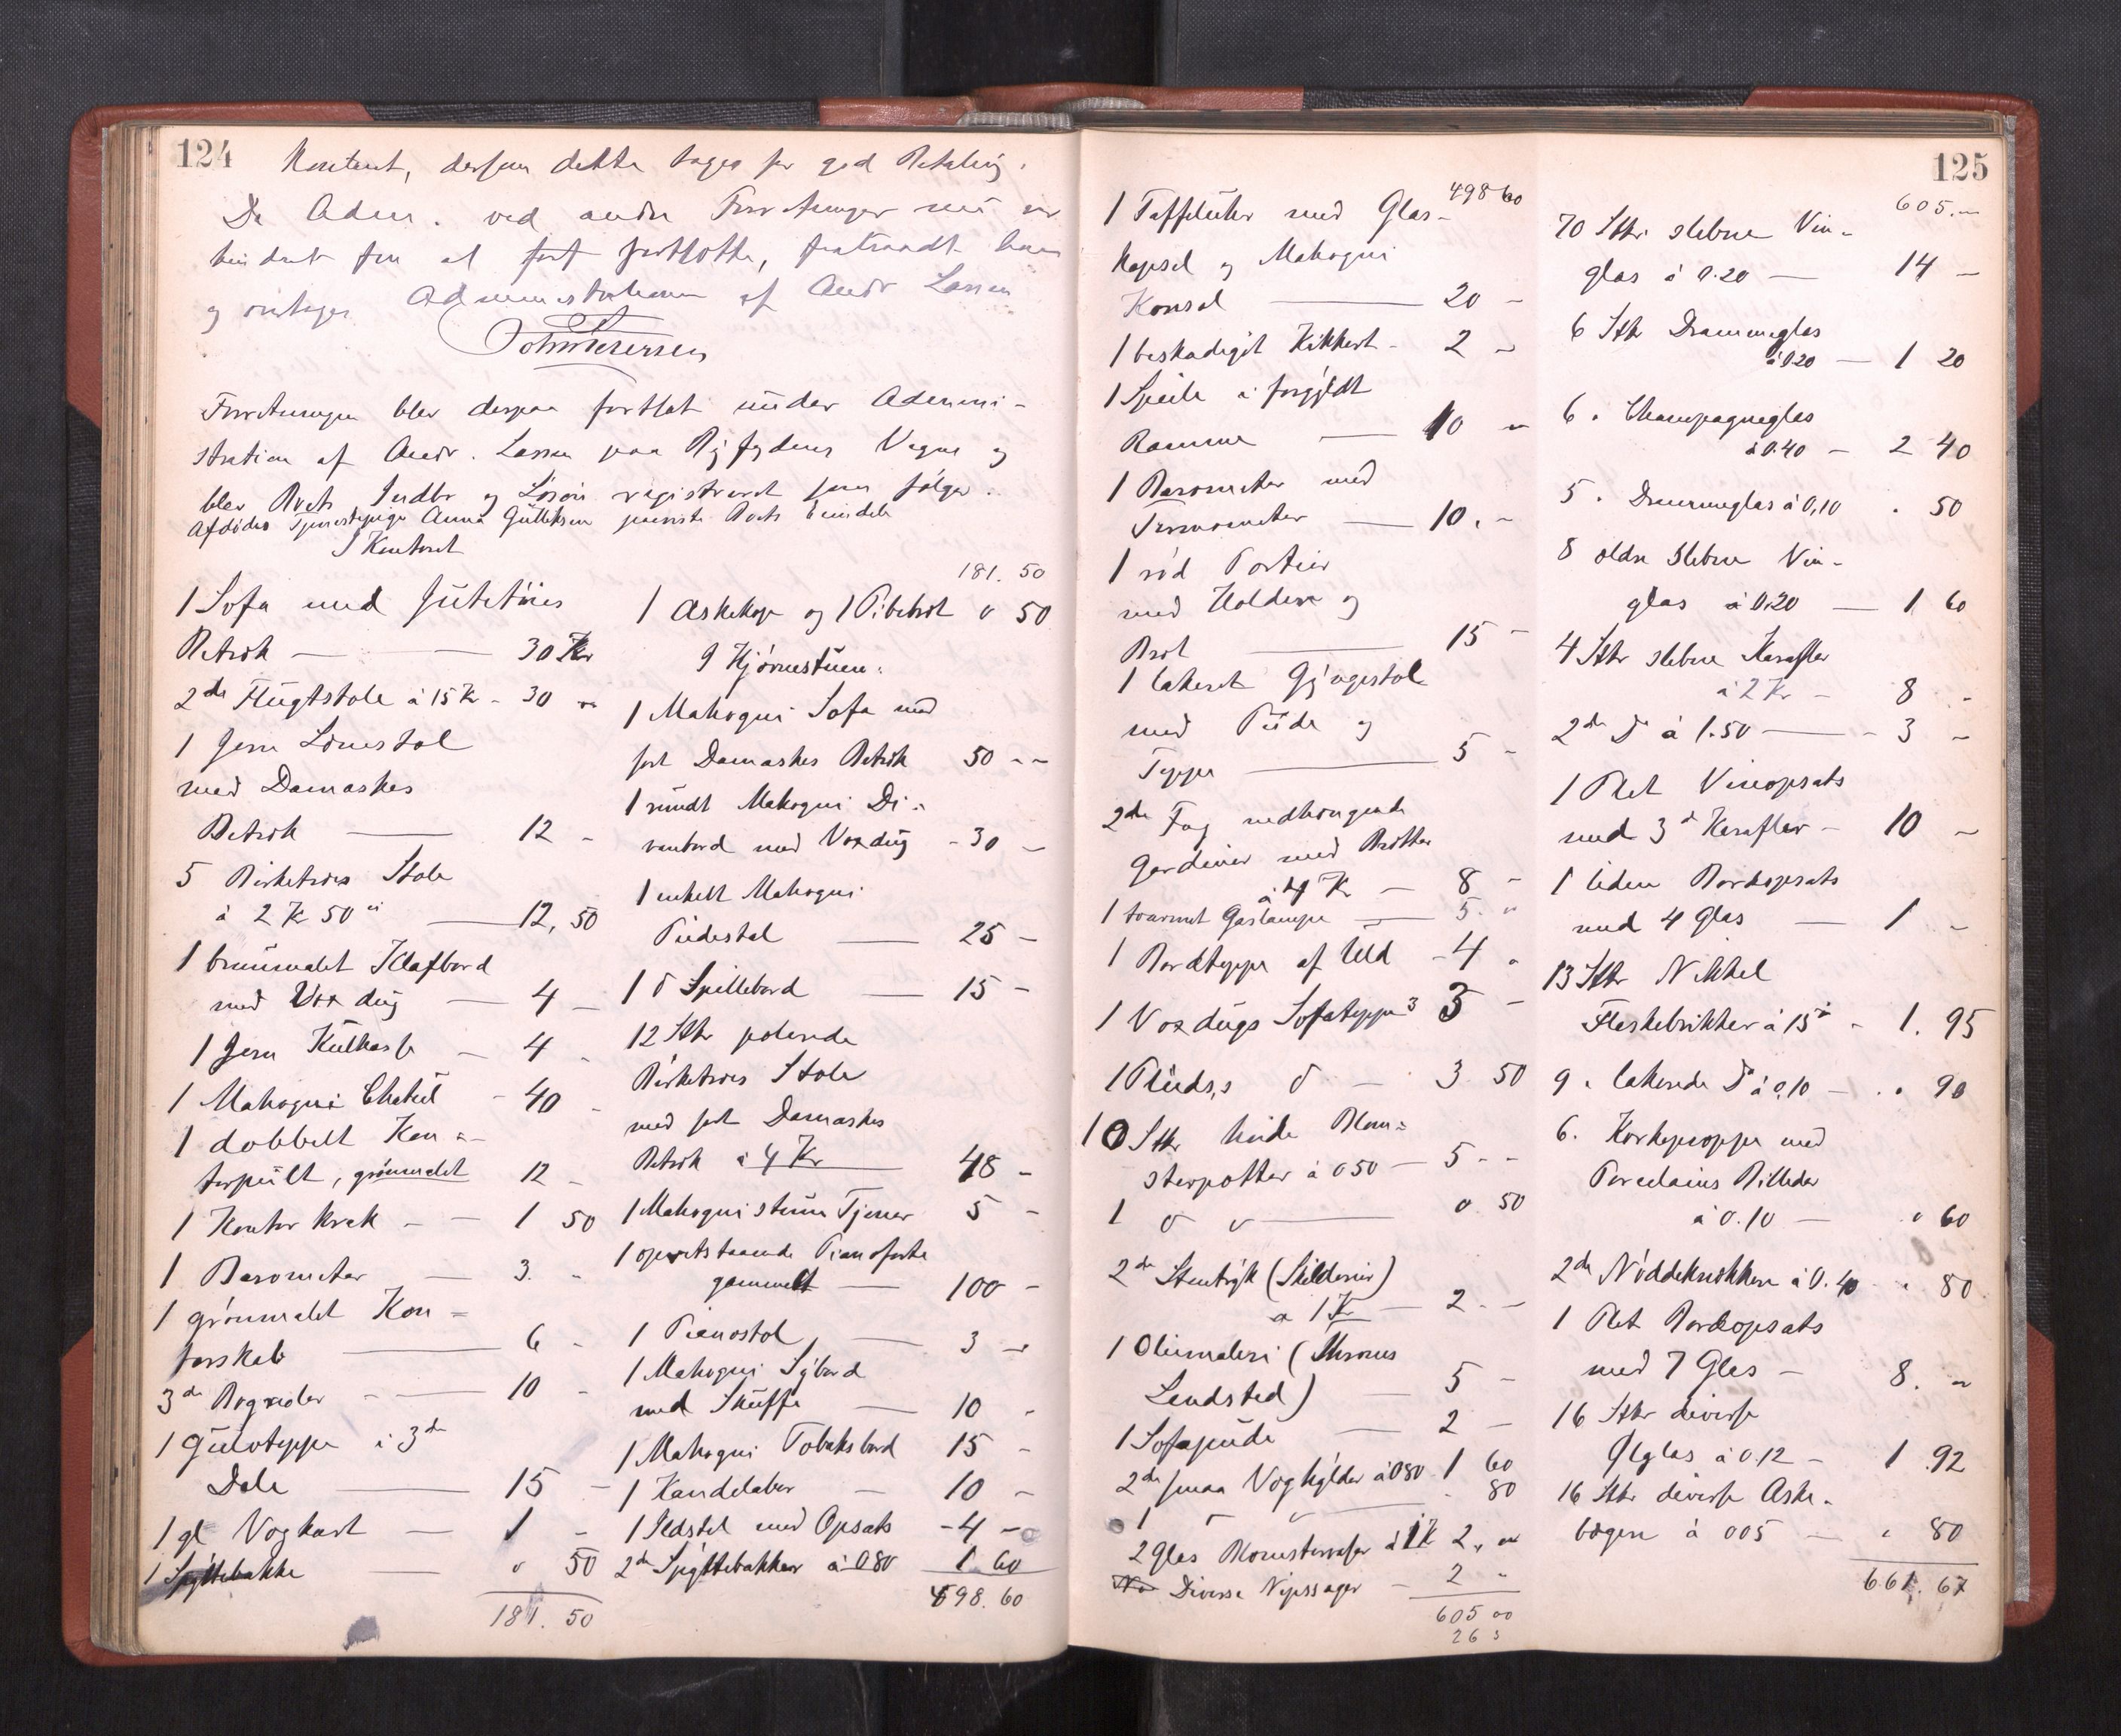 124
Kontent, dersom dette tages for god Betaling.
Da Adm. ved andre Forretninger nu er
hindret fra at fortsætte, fratraadte han
og overtoges Administrationen af Andr Larsen
Forretningen blev derpaa fortsat under Admini-
stration af Andr. Larsen paa Byfogdens Vegne og
blev Boets Indbo og Løsøre registreret som følger.
Afdødes Tjenestepige Anna Gulliksen paaviste Boets Eiendele
I Kontoret
1 Sofa med Jutetøies
Betræk — 30 Kr
2de Flugtstole à 15 Kr - 30 "
1 Jern Lænestol
med Damaskes
Betræk — 12 -
5 Birketræes Stole
à 2 Kr 50 — 12,50
1 brunmalet Klafbord
med Voxdug — 4 -
1 Jern Kulkasse — 4 -
1 Mahogni Chatul - 40 -
1 dobbelt Kon-
torpult, grønmalet 12 -
1 Kontor krak - - 1 50
1 Barometer — 3. -
1 grønmalet Kon-
torskab — 6 -
3de Bogreoler - — 10 -
1 Gulvteppe i 3de
Dele — 15 -
1 gl Vægkart — 1 -
1 Spyttebakke — " 50
181. 50
181. 50
1 Askekop og 1 Pibebræt " 50
I Hjørnestuen.
1 Mahogni Sofa med
sort Damaskes Betræk 50 - -
1 rundt Mahogni Di-
vanbord med Voxdug - 30 -
1 enkelt Mahogni
Pidestal — 25 -
1 do Spillebord — 15 -
12 Stkr polerede
Birketræes Stole
med sort Damaskes
Betræk à 4 Kr — 48 -
1 Mahogni stum Tjener 5 -
1 opretstaaende Pianoforte
gammelt — 100 -
1 Pianostol — 3 -
1 Mahogni Sybord
med Skuffe — 10 -
1 Mahogni Tobaksbord 15 -
1 Kandelaber — 10 -
1 Ildstel med Opsats - 4 -
2de Spyttebakker à 0 80 1 60
498. 60
125
498 60
1 Taffeluhr med Glas-
kapsel og Mahogni
Konsol — 20 -
1 beskadiget Kikkert - 2 -
1 Speile i forgyldt
Ramme — 10 "
1 Barometer med
Termometer — 10. -
1 rød Portier
med Holdere og
Bræt — 15 -
1 lakeret Gyngestol
med Pude og
Teppe — 5 -
2de Fag nedhængende
Gardiner med Brætter
à 4 Kr — 8 -
1 toarmet Gaslampe — 5. "
1 Bordteppe af Uld - 4 "
1 Voxdugs Sofateppe 3 3 -
1 Pluds,s do — 3 50
10 Stkr hvide Blom-
sterpotter à 0 50 — 5 - -
1 do do — 0 50
2de Stentryk (Skilderier)
à 1 Kr — 2. -
1 Oliemaleri (Thronus
Lendsted) — 5 -
1 Sofapude — 2 -
2de smaa Væghylder à 0 80 - 1 60
1 do do — 80
2 Glas Blomstervaser à 1 Kr 2, "
Diverse Nipssager — 2 "
605 00
26 3
605. -
70 Stkr. slebne Vin-
glas à 0.20 — 14 -
6 Stkr Dramueglas
à 0.20 — 1 20
6 " Champagneglas
à 0.40 - 2 40
5 " Dramueglas à 0,10 " 50
8 ældre slebne Vin-
glas à 0.20 — 1. 60
4 Stkr slebne Karafler
à 2 Kr - 8 -
2de do à 1.50 — 3 -
1 Plet Vinopsats
med 3de Karafler - 10 -
1 liden Bordopsats
med 4 Glas — 1 -
13 Stkr Nikkel
Flaskebrikker à 15 " - 1. 95
9 " lakerede do à 0,10 — " 90
6. Korkepropper med
Porcelains Billeder
à 0.10 — " 60
2de Nøddeknækkere à 0.40 " 80
1 Plet Bordopsats
med 7 Glas — 8. "
16 Stkr diverse
Ølglas à 0.12 - 1 .92
16 Stkr diverse Aske-
bægere à 0 05 — " 80
661. 67